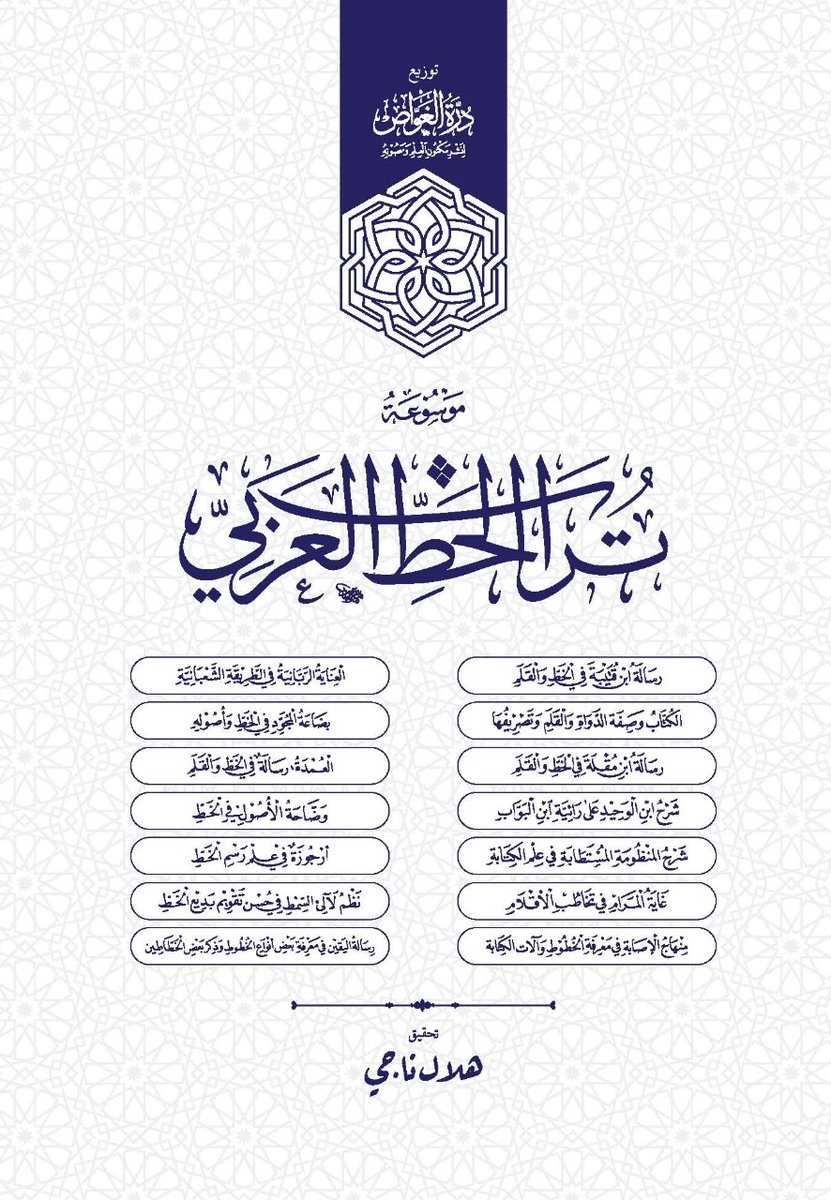 توزيع
دُرَّةُ الغَوَّاص
لِنَشْرِ مَكْنُونِ العِلْمِ وَمَصُونِهِ
مَوْسُوعَةُ
تُرَاثُ الخَطِّ العَرَبِيِّ
رِسَالَةُ ابْنِ قُتَيْبَةَ فِي الْخَطِّ وَالْقَلَمِ
الكُتَّابُ وَصِفَةُ الدَّوَاةِ وَالْقَلَمِ وَتَصْرِيفُهَا
رِسَالَةُ ابْنِ مُقْلَةَ فِي الْخَطِّ وَالْقَلَمِ
شَرْحُ ابْنِ الْوَحِيدِ عَلَى رَائِيَّةِ ابْنِ الْبَوَّابِ
شَرْحُ الْمَنْظُومَةِ الْمُسْتَطَابَةِ فِي عِلْمِ الْكِتَابَةِ
غَايَةُ الْمَرَامِ فِي تَخَاطُبِ الْأَقْلَامِ
مِنْهَاجُ الْإِصَابَةِ فِي مَعْرِفَةِ الْخُطُوطِ وَآلَاتِ الْكِتَابَةِ
الْعِنَايَةُ الرَّبَّانِيَّةُ فِي الطَّرِيقَةِ الشَّعْبَانِيَّةِ
بِضَاعَةُ الْمُجَوِّدِ فِي الْخَطِّ وَأُصُولِهِ
الْعُمْدَةُ، رِسَالَةٌ فِي الْخَطِّ وَالْقَلَمِ
وَضَّاحَةُ الْأُصُولِ فِي الْخَطِّ
أُرْجُوزَةٌ فِي عِلْمِ رَسْمِ الْخَطِّ
نَظْمُ لَآلِئِ السِّمْطِ فِي حُسْنِ تَقْوِيمِ بَدِيعِ الْخَطِّ
رِسَالَةُ الْيَقِينِ فِي مَعْرِفَةِ بَعْضِ أَنْوَاعِ الْخُطُوطِ وَذِكْرِ بَعْضِ الْخَطَّاطِينَ
تحقيق
هلال ناجي